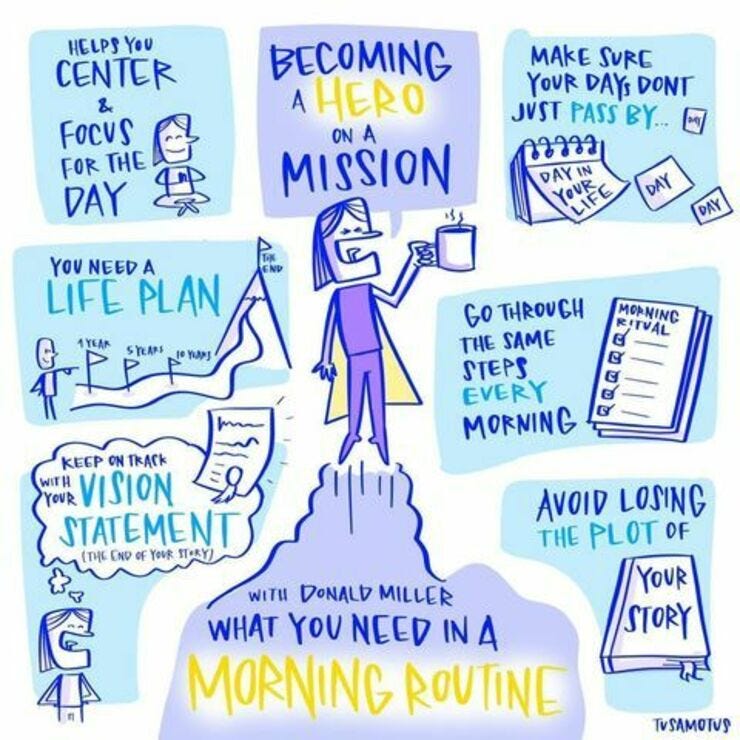 HELPS YOU
CENTER
&
FOCUS
FOR THE
DAY
BECOMING
A HERO
ON A
MISSION
MAKE SURE
YOUR DAYS DONT
JUST PASS BY...
DAY
DAY IN
YOUR
LIFE
DAY
DAY
YOU NEED A
LIFE PLAN
THE
END
1 YEAR
5 YEARS
10 YEARS
GO THROUGH
THE SAME
STEPS
EVERY
MORNING
MORNING
RITUAL
KEEP ON TRACK
WITH
YOUR VISION
STATEMENT
(THE END OF YOUR STORY)
AVOID LOSING
THE PLOT OF
YOUR
STORY
WITH DONALD MILLER
WHAT YOU NEED IN A
MORNING ROUTINE
TVSAMOTVS